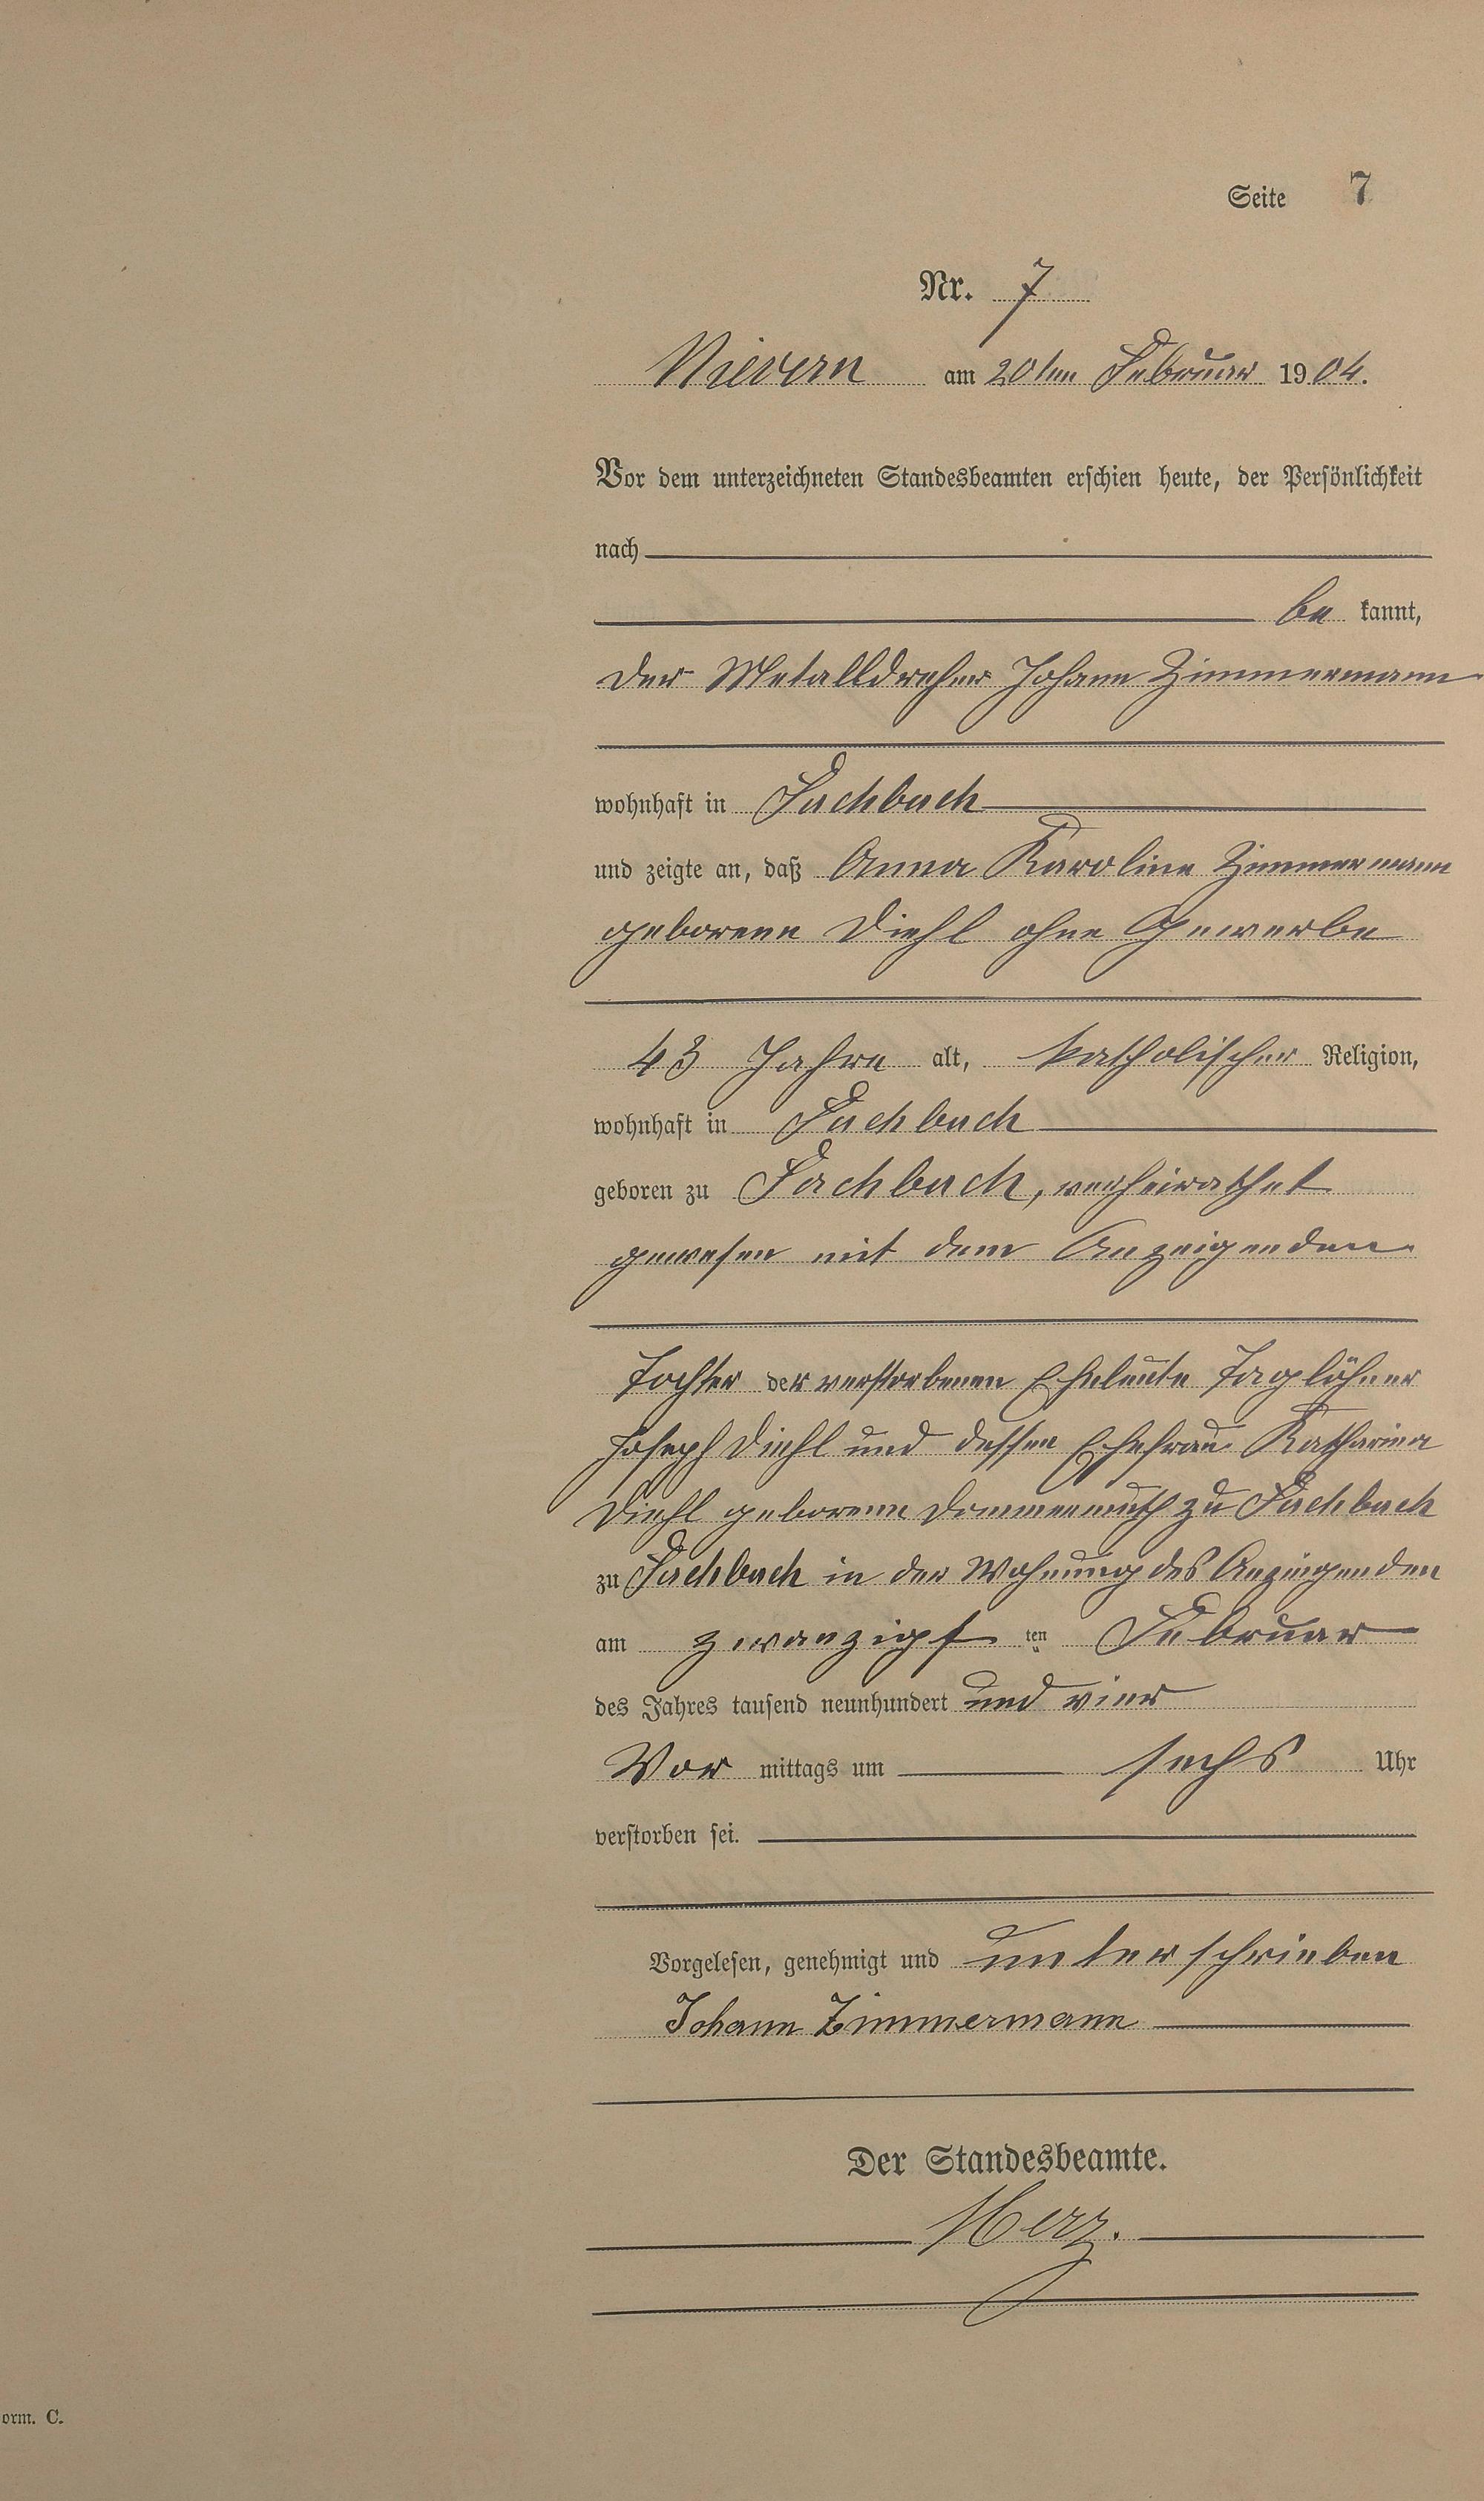 Seite 7
Nr. 7
Nievern am 20ten Februar 1904.
Vor dem unterzeichneten Standesbeamten erschien heute, der Persönlichkeit
nach
be kannt,
der Metalldreher Johann Zimmermann
wohnhaft in Fachbach
und zeigte an, daß Anna Karoline Zimmermann
geborene Diehl ohne Gewerbe
43 Jahre alt, katholischer Religion,
wohnhaft in Fachbach
geboren zu Fachbach, verheirathet
gewesen mit dem Anzeigenden
Tochter der verstorbenen Eheleute Taglöhner
Joseph Diehl und dessen Ehefrau Katharina
Diehl geborene Dommermuth zu Fachbach
zu Fachbach in der Wohnung des Anzeigenden
am zwanzigsten Februar
des Jahres tausend neunhundert und vier
Vor mittags um sechs Uhr
verstorben sei.
Vorgelesen, genehmigt und unterschrieben
Johann Zimmermann
Der Standesbeamte.
Herz.
orm. C.